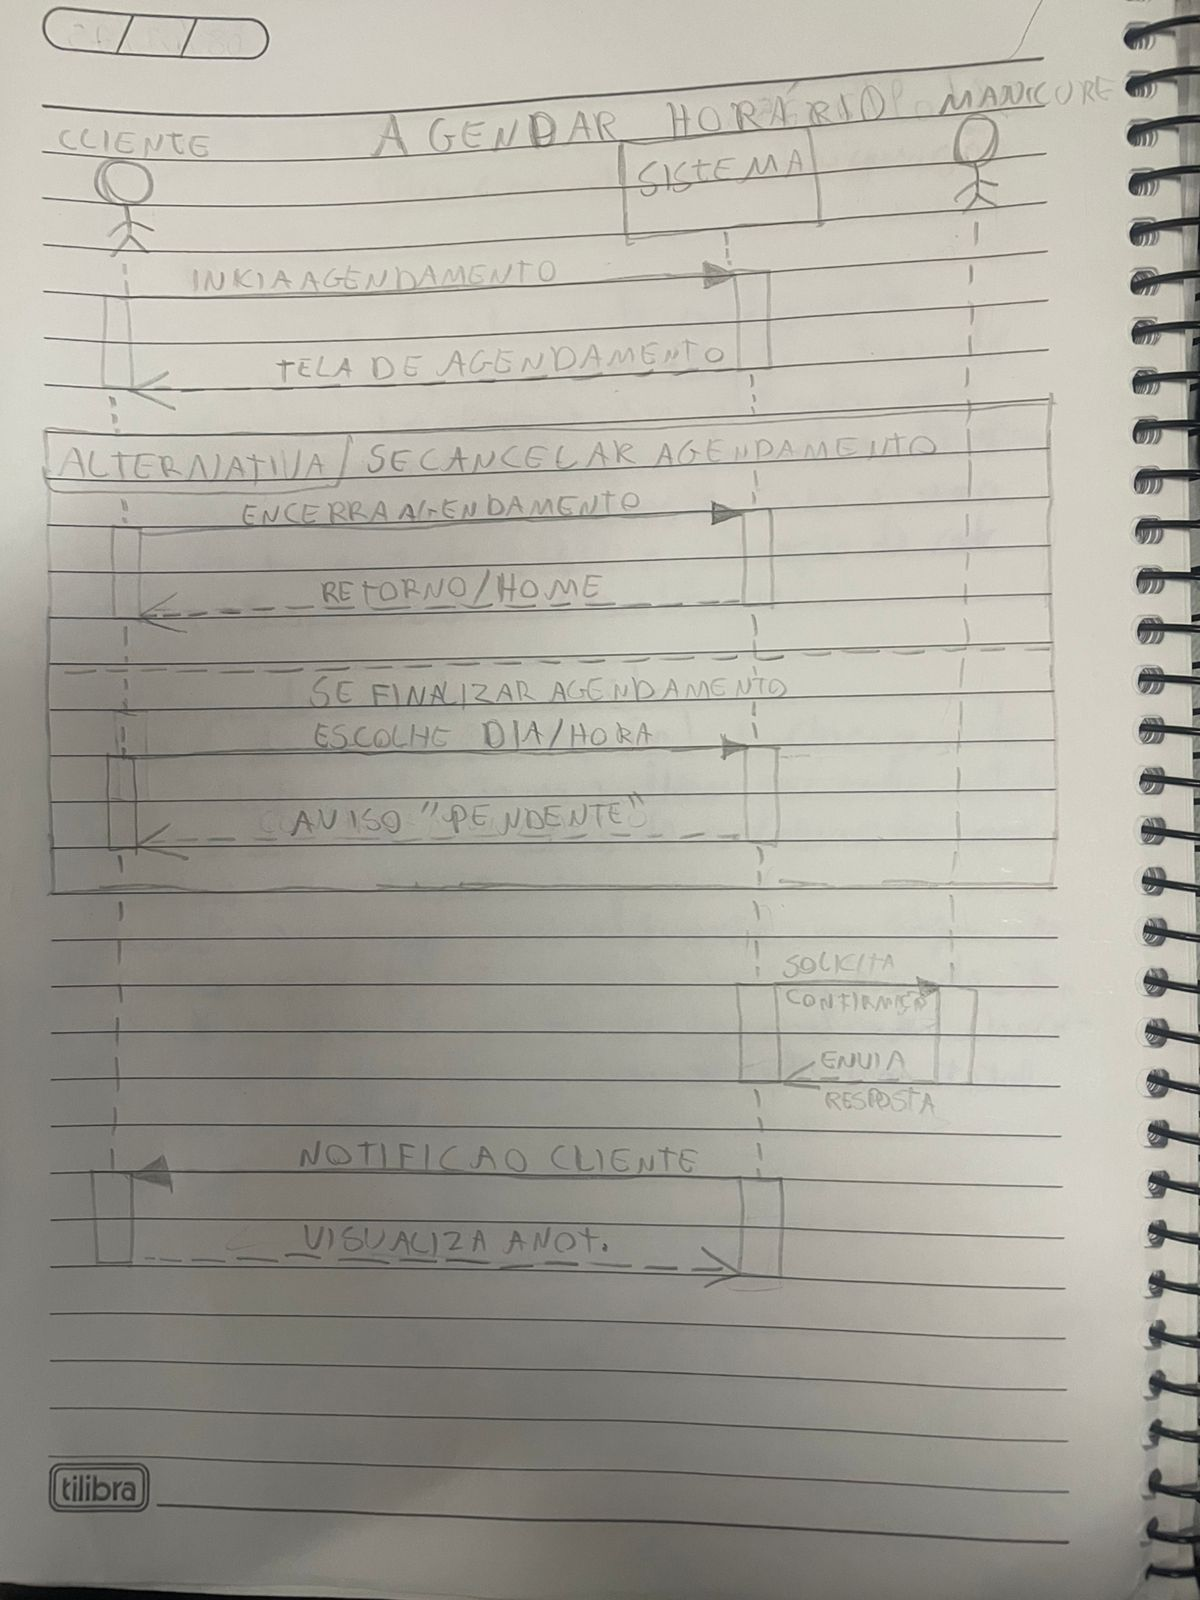 AGENDAR HORÁRIO
CCLIENTE
MANICURE
SISTEMA
INICIAAGENDAMENTO
TELA DE AGENDAMENTO
ALTERNATIVA / SE CANCELAR AGENDAMENTO
ENCERRA AGENDAMENTO
RETORNO/HOME
SE FINALIZAR AGENDAMENTO
ESCOLHE DIA/HORA
AVISO "PENDENTE"
SOLICITA
ENVIA
RESPOSTA
NOTIFICAO CLIENTE
VISUALIZA A NOT.
tilibra